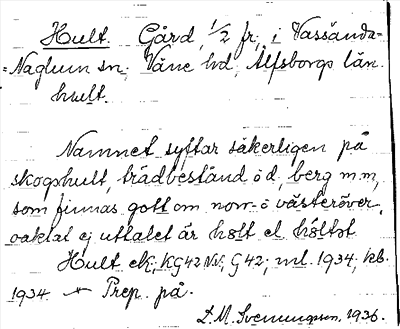 Hult. Gård, 1/2 fr, i Vassända-
=Naglum sn. Väne hd, Älfsborgs län.
hult.
Namnet syftar säkerligen på
skogshult, trädbestånd o d, berg m.m,
som finnas gott om norr- o västeröver,
oaktat ej uttalet är hølt el höltət
Hult ek; KG42 NV, G42; ml. 1934, kb.
1934. Prep. på.
L. M. Svenungsson, 1936.